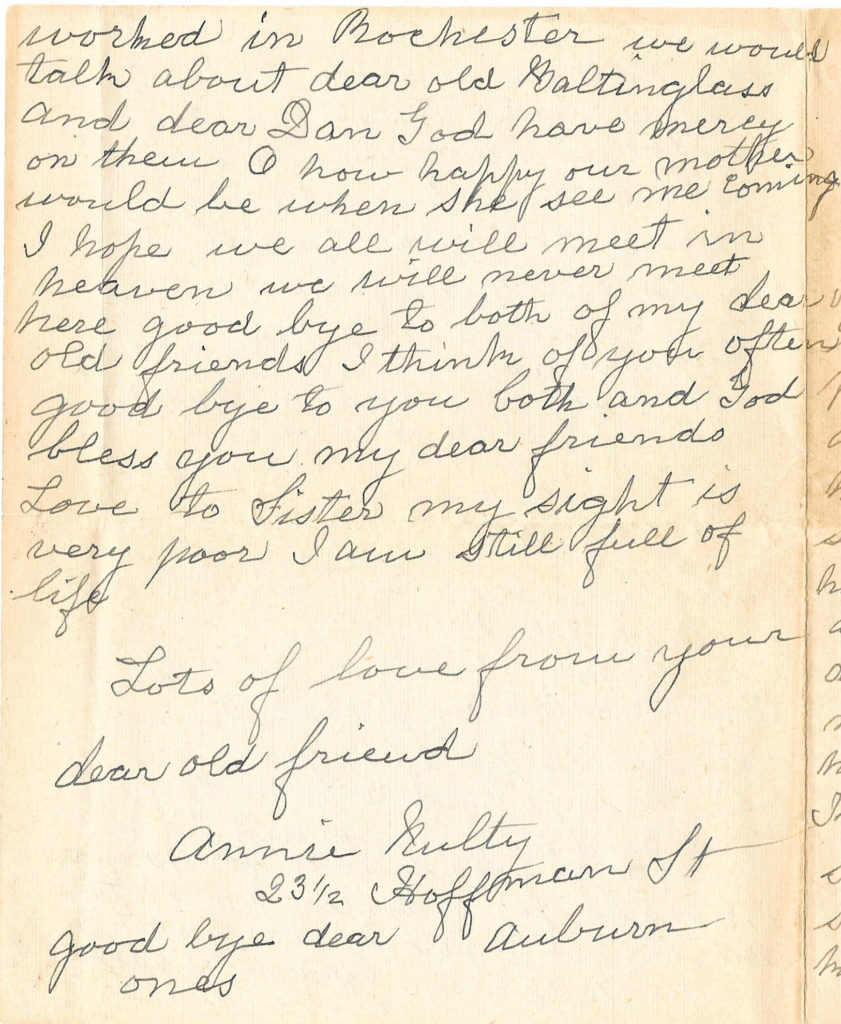 worked in Rochester we would
talk about dear old Baltinglass
and dear Dan God have mercy
on them O how happy our mother
would be when she see me coming
I hope we all will meet in
heaven we will never meet
here good bye to both of my dear
old friends I think of you often
good bye to you both and God
bless you my dear friends
Love to Sister my sight is
very poor I am still full of
life
Lots of love from your
dear old friend
Annie Nulty
23 1/2 Hoffman St
good bye dear Auburn
ones